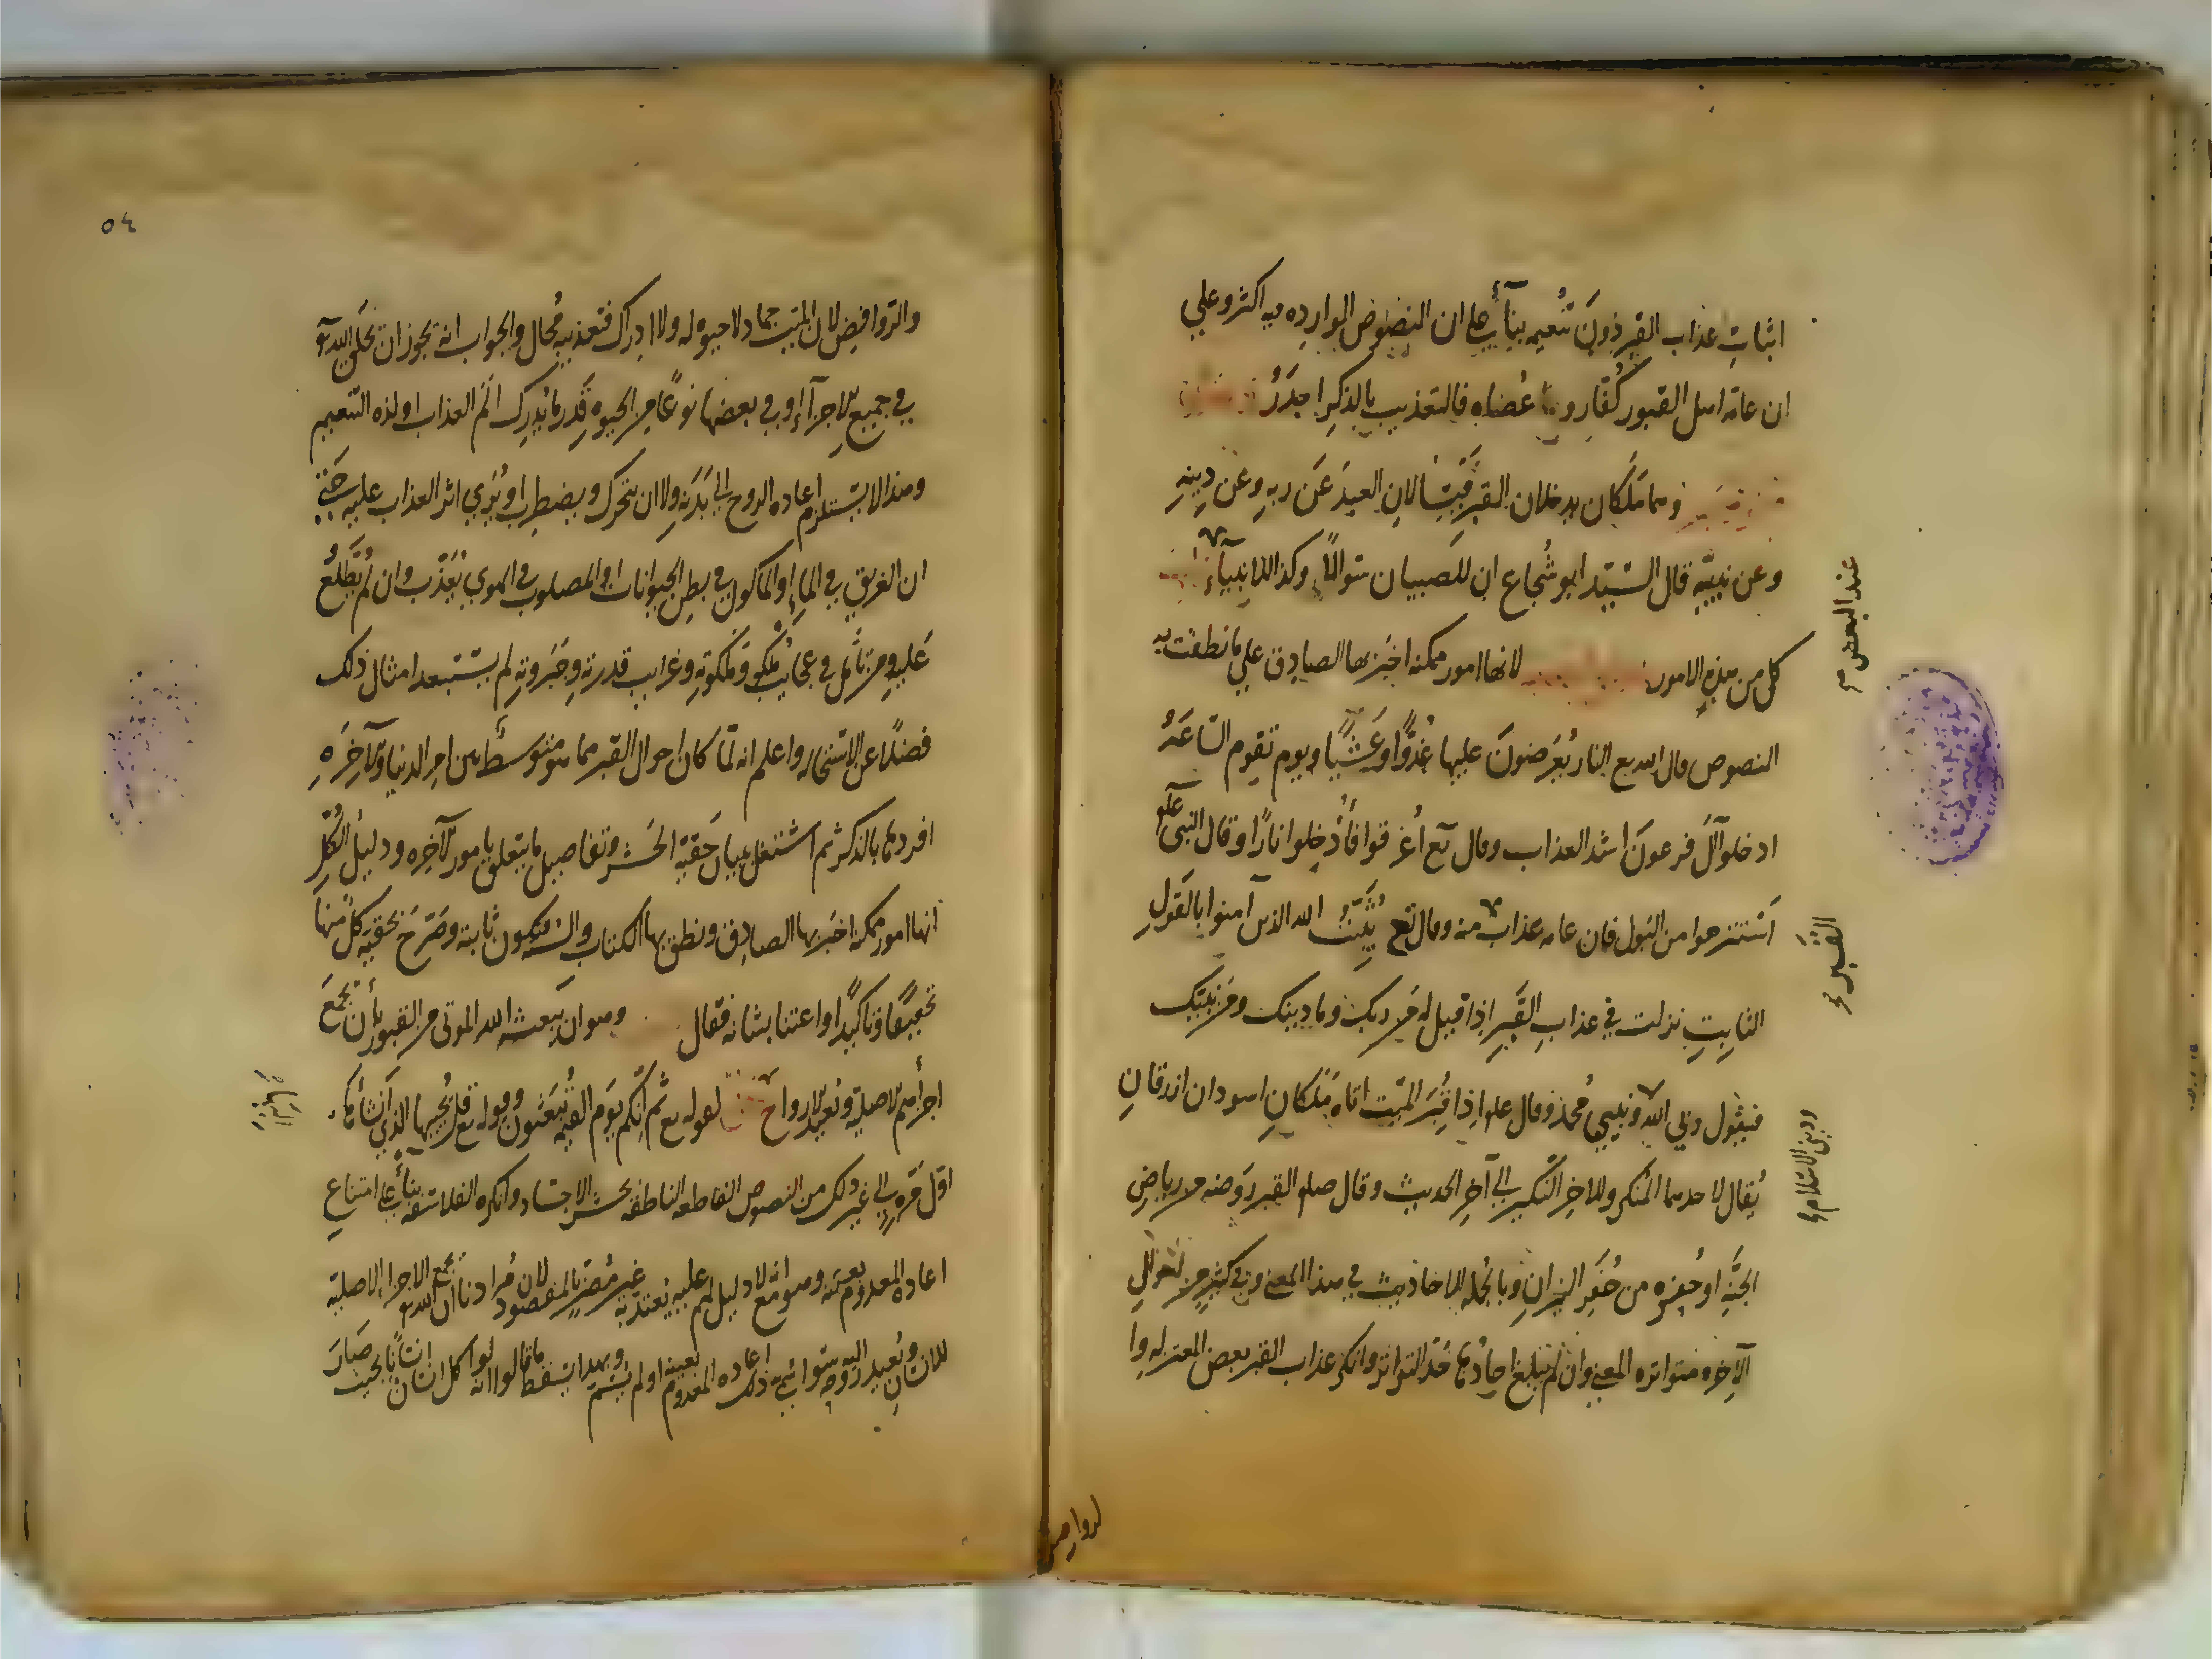 اثبات عذاب القبر دون تنعيمه بناء على ان النصوص الواردة فيه اكثر وعلى
ان عامة اهل القبور كفار و عصاه فالتعذيب بالذكر اجدر
وهما ملكان يدخلان القبر فيسالان العبد عن ربه وعن دينه
وعن نبيه قال السيد ابو شجاع ان للصبيان سوالا وكذا للانبياء
عند البعض
كل من هذه الامور لانها امور ممكنة اخبر بها الصادق على ما نطقت به
النصوص قال الله تع النار يعرضون عليها غدوا وعشيا ويوم تقوم الساعة
ادخلوا آل فرعون اشد العذاب وقال تع اغرقوا فأدخلوا نارا وقال النبي علم
استنزهوا من البول فان عامه عذاب منه وقال تع يثبت الله الذين آمنوا بالقول
القبر
الثابت نزلت في عذاب القبر اذا قيل له من ربك وما دينك ومن نبيك
فيقول ربي الله ونبيي محمد وقال علم اذا قبر الميت اتاه ملكان اسودان ازرقان
وديني الاسلام
يقال لاحدهما المنكر وللآخر النكير الى آخر الحديث وقال صلعم القبر روضه من رياض
الجنة او حفرة من حفر النيران وبالجملة الاحاديث في هذا المعنى وفي كثير من احوال
الآخرة متواترة المعنى وان لم يبلغ احادها حد التواتر وانكر عذاب القبر بعض المعتزله وا
لروافض
٥٤
والروافض لان الميت جماد لا حيوة له ولا ادراك فتعذيبه محال والجواب انه يجوز ان يخلق الله تع
في جميع الاجزاء او في بعضها نوعا من الحيوة قدر ما يدرك الم العذاب او لذة التنعيم
وهذا لا يستلزم اعاده الروح الى بدنه ولا ان يتحرك ويضطرب او يرى اثر العذاب عليه حتى
ان الغريق في الماء او المأكول في بطن الحيوانات او المصلوب في الهوى يعذب وان لم يطلع
عليه ومن تأمل في عجائب ملكه وملكوته وغرايب قدرته وجبروته لم يستبعد امثال ذلك
فضلا عن الاستحاله واعلم انه لما كان احوال القبر مما هو متوسط بين امر الدنيا والآخره
افردها بالذكر ثم اشتغل ببيان حقية الحشر وتفاصيل ما يتعلق بامور الآخره ودليل الكل
انها امور ممكنة اخبر بها الصادق ونطق بها الكتاب والسنة فيكون ثابتة وصرح بحقية كل منها
تحقيقا وتاكيدا واعتنا بشانه فقال وهو ان يبعث الله الموتى من القبور بأن يجمع
اجزأهم الاصلية ويعيد الارواح لقوله تع ثم انكم يوم القيمة تبعثون وقوله تع قل يحييها الذي انشأها
اول مرة الى غير ذلك من النصوص القاطعه الناطقه بحشر الاجساد وانكره الفلاسفه بناء على امتناع
اعاده المعدوم بعينه وهو مع انه لا دليل لهم عليه يعتد به غير مضر بالمقصود لان مرادنا ان الله تع يجمع الاجزاء الاصلية
للانسان ويعيد روحه اليه سوا سمي ذلك اعاده المعدوم بعينه او لم يسم وبهذا يسقط ما قالوا انه لو اكل انسان انسانا بحيث صار